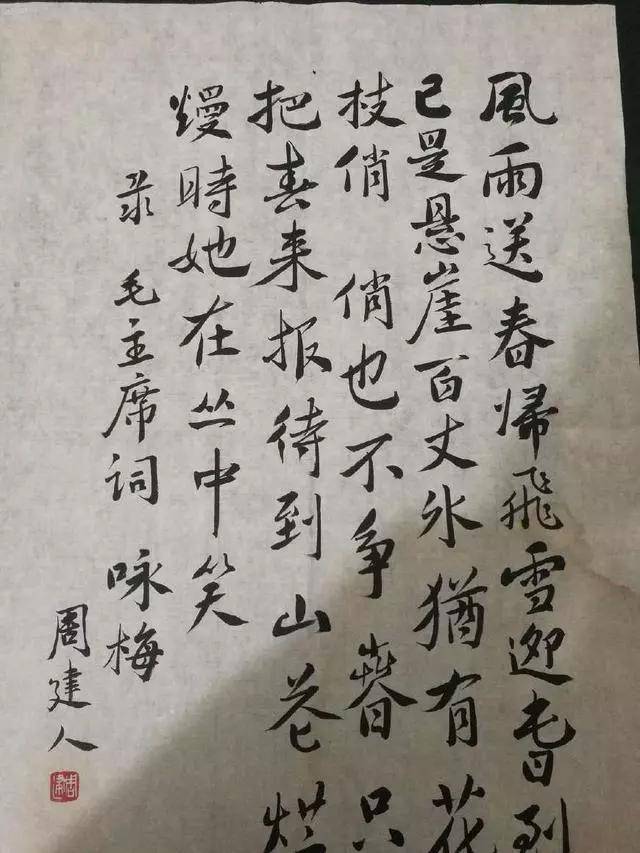 風雨送春帰飛雪迎春到
已是悬崖百丈氷猶有花
枝俏 俏也不争春只
把春来报待到山花烂
熳時她在丛中笑
录毛主席词 咏梅
周建人